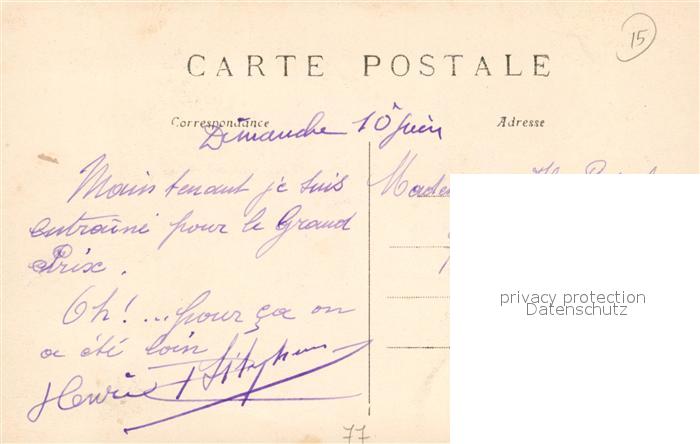 15
CARTE POSTALE
Correspondance
Adresse
Dimanche 10 Juin
Maintenant je suis
entraîné pour le Grand
Prix.
Oh! ... pour ça on
a été loin
Henri
privacy protection
Datenschutz
77